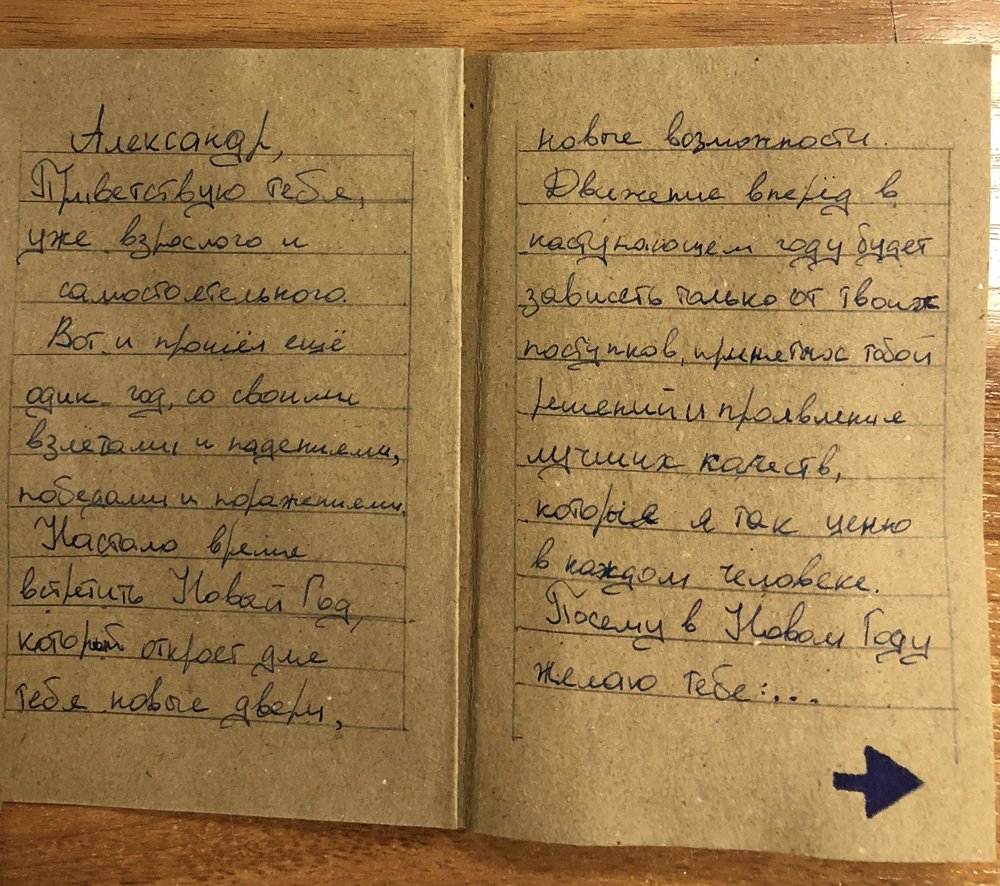 Александр,
Приветствую тебя,
уже взрослого и
самостоятельного.
Вот и прошёл ещё
один год, со своими
взлётами и падениями,
победами и поражениями.
Настало время
встретить Новый Год,
который откроет для
тебя новые двери,
новые возможности.
Движение вперёд в
наступающем году будет
зависеть только от твоих
поступков, принятых тобой
решений и проявления
лучших качеств,
которые я так ценю
в каждом человеке.
Посему в Новом Году
желаю тебе:...